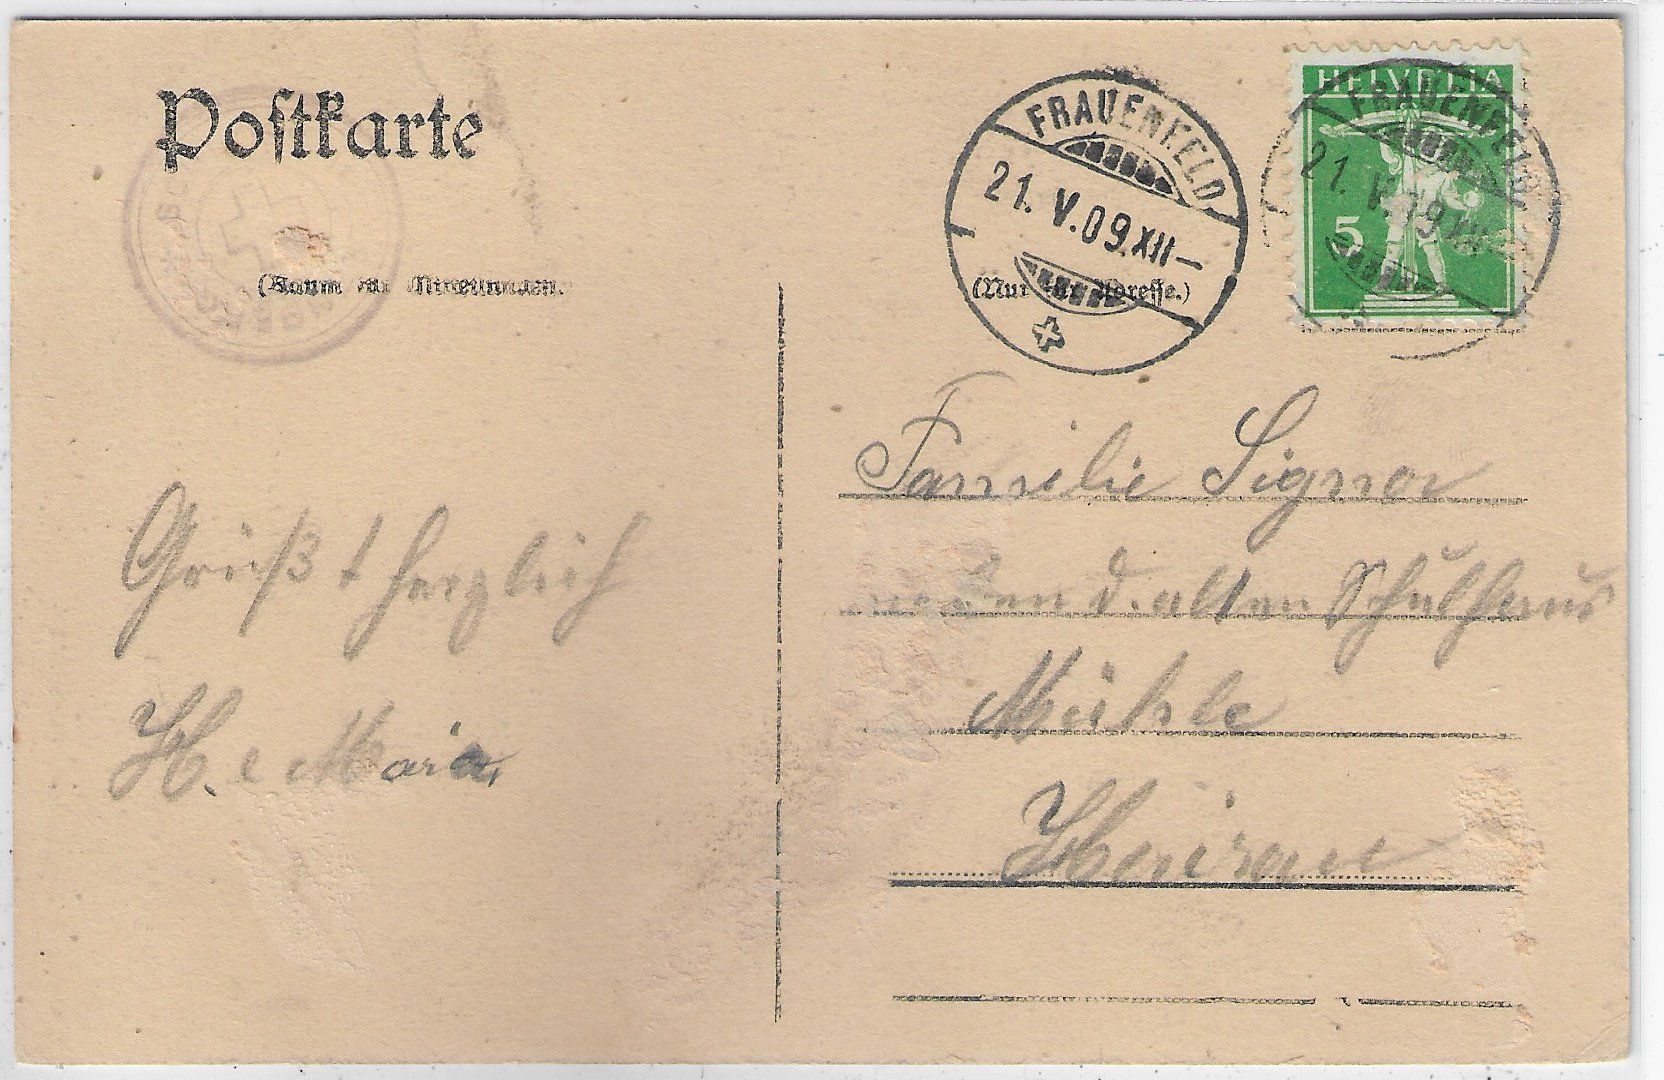 Postkarte
(Raum für Mitteilungen.
(Nur für Adresse.)
FRAUENFELD
21. V. 09. XII–
HELVETIA
5
FRAUENFELD
21. V. 09. XII
Familie Signor
neben d. alten Schulhaus
Mühle
Grüßt herzlich
H. e Maria